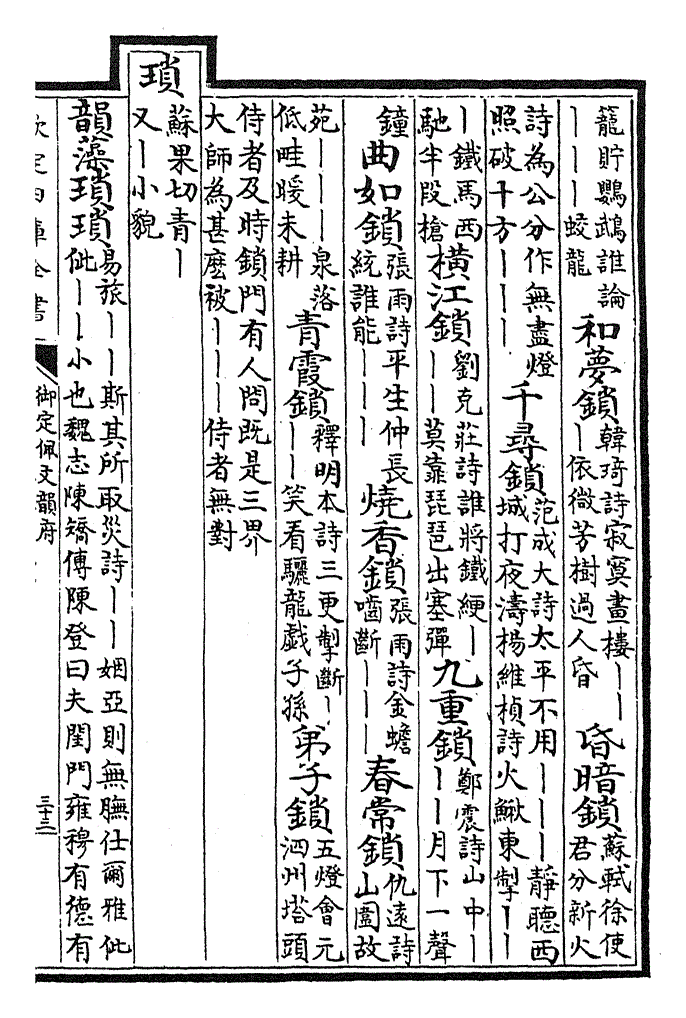 籠貯鸚鵡誰論丨丨丨蛟龍和夢鎖韓琦詩寂寞畫樓丨丨丨依微芳樹過人昏昏暗鎖蘇軾徐使君分新火
詩為公分作無盡燈照破十方丨丨丨千尋鎖范成大詩太平不用丨丨丨靜聽西城打夜濤楊維楨詩火鰍東掣丨丨
丨鐵馬西馳半段槍橫江鎖劉克莊詩誰將鐵綆丨丨丨莫靠琵琶出塞彈九重鎖鄭震詩山中丨丨丨月下一聲
鐘曲如鎖張雨詩平生仲長統誰能丨丨丨燒香鎖張雨詩金蟾嚙斷丨丨丨春常鎖仇遠詩山園故
苑丨丨丨泉落低畦暖未耕青霞鎖釋明本詩三更掣斷丨丨丨笑看驪龍戲子孫弟子鎖五燈會元泗州塔頭
侍者及時鎖門有人問既是三界大師為甚麽被丨丨丨侍者無對
瑣蘇果切青丨又丨小貌
韻藻瑣瑣易旅丨丨斯其所取災詩丨丨姻亞則無膴仕爾雅佌佌丨丨小也魏志陳矯傳陳登曰夫閨門雍穆有德有
欽定四庫全書
御定佩文韻府
三十三